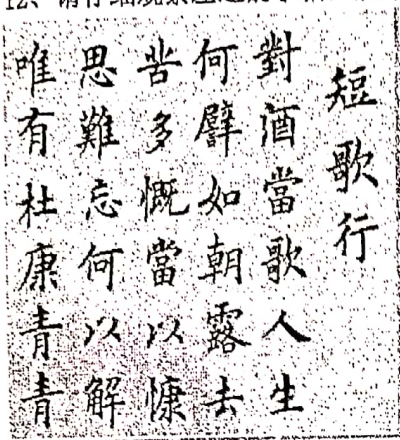 短歌行
對酒當歌人生
何譬如朝露去
苦多慨當以慷
思難忘何以解
唯有杜康青青